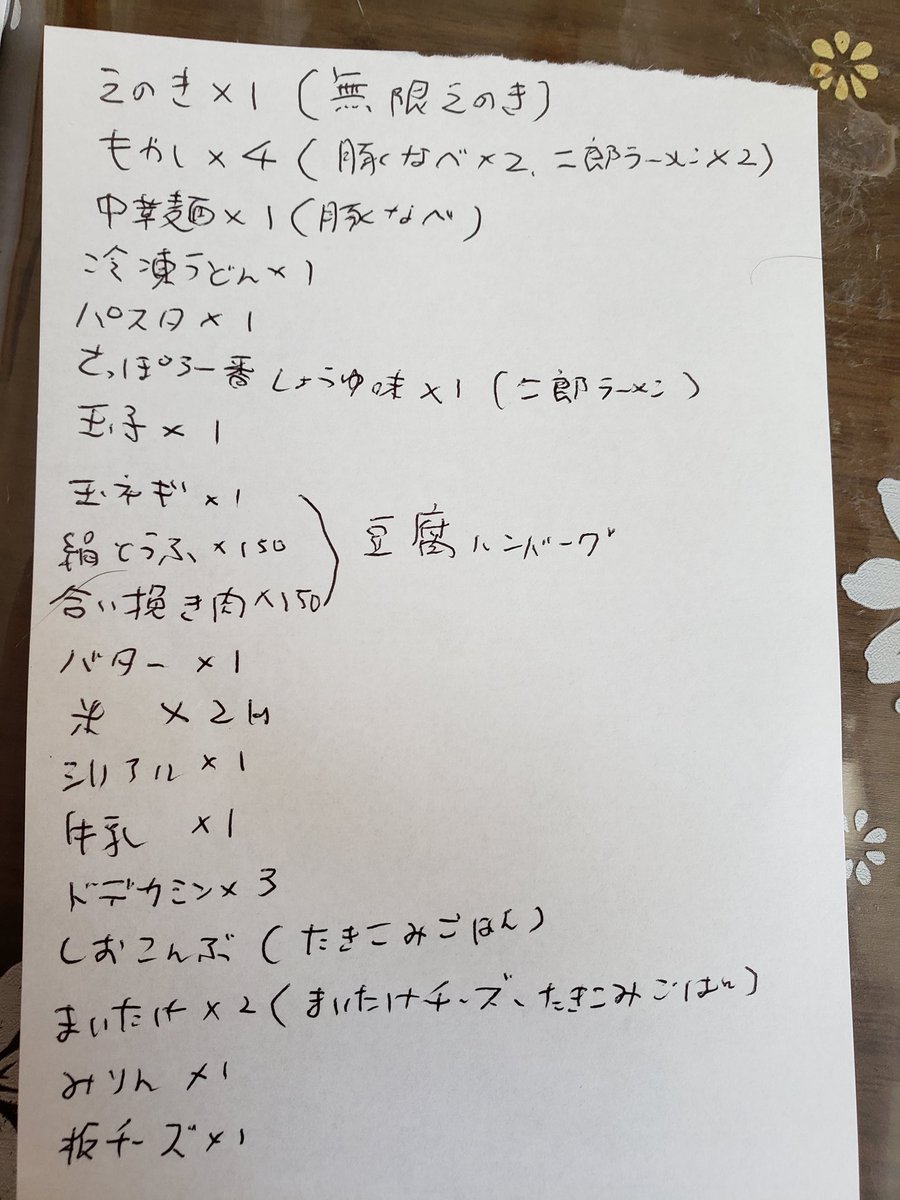 えのき×1 (無限えのき)
もやし×4 (豚なべ×2、二郎ラーメン×2)
中華麺×1 (豚なべ)
冷凍うどん×1
パスタ×1
さっぽろ一番 しょうゆ味×1 (二郎ラーメン)
玉子×1
玉ネギ×1
絹とうふ×150
合い挽き肉×150
豆腐ハンバーグ
バター×1
米 ×2
シリアル×1
牛乳 ×1
ドデカミン×3
しおこんぶ (たきこみごはん)
まいたけ×2 (まいたけチーズ、たきこみごはん)
みりん×1
板チーズ×1